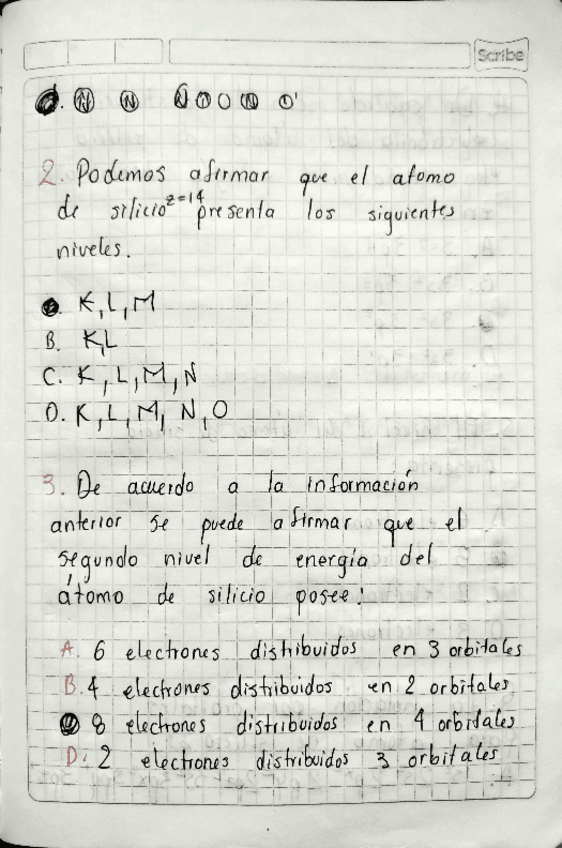 Scribe
2. Podemos afirmar que el atomo
de silicio z=14 presenta los siguientes
niveles.
K, L, M
B. K,L
C. K, L, M, N
D. K, L, M, N, O
3. De acuerdo a la información
anterior se puede afirmar que el
segundo nivel de energía del
átomo de silicio posee:
A. 6 electrones distribuidos en 3 orbitales
B. 4 electrones distribuidos en 2 orbitales
8 electrones distribuidos en 4 orbitales
D. 2 electrones distribuidos 3 orbitales